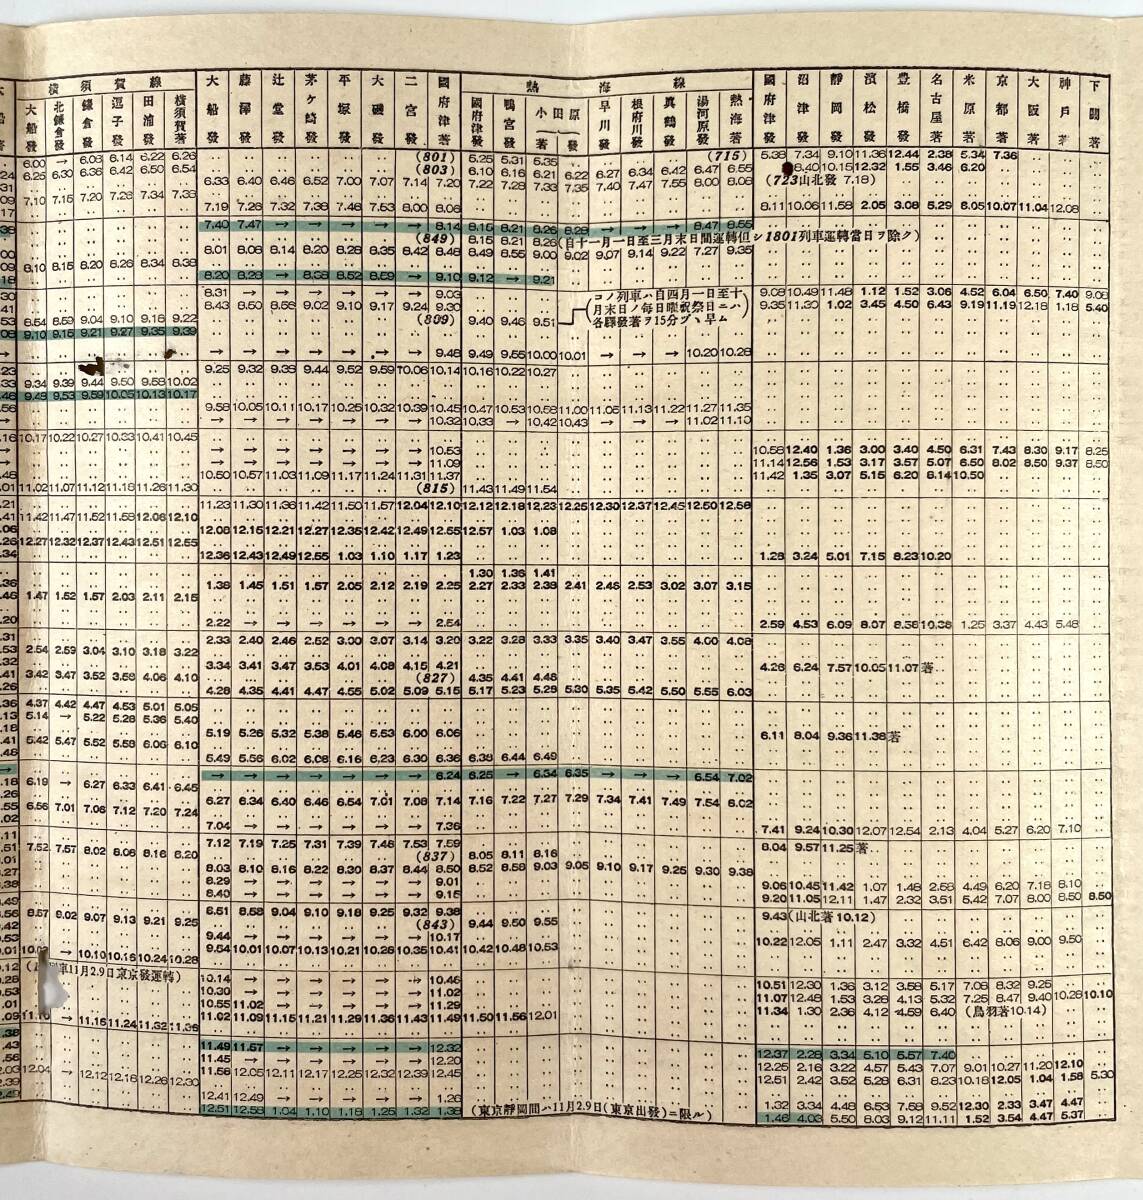 橫須賀線
熱海線
大船發 北鎌倉發 鎌倉發 逗子發 田浦發 橫須賀著 大船發 藤澤發 辻堂發 茅ケ崎發 平塚發 大磯發 二宮發 國府津著 國府津發 鴨宮發 小田原著 發 早川發 根府川發 眞鶴發 湯河原發 熱海著 國府津發 沼津發 靜岡發 濱松發 豐橋發 名古屋著 米原著 京都著 大阪著 神戶著 下關著
6.00 → 6.08 6.14 6.22 6.26 (801) 5.25 5.31 5.35 (715) 5.38 7.34 9.10 11.36 12.44 2.38 5.34 7.36
6.25 6.30 6.36 6.42 6.50 6.54 (803) 6.10 6.16 6.21 6.22 6.27 6.34 6.42 6.47 6.55 8.40 10.15 12.32 1.55 3.46 6.20
6.33 6.40 6.46 6.52 7.00 7.07 7.14 7.20 7.22 7.28 7.33 7.35 7.40 7.47 7.55 8.00 8.08 (723山北發 7.18)
7.10 7.15 7.20 7.26 7.34 7.38
7.19 7.26 7.32 7.38 7.46 7.53 8.00 8.06 8.11 10.06 11.58 2.05 3.08 5.29 8.05 10.07 11.04 12.08
7.40 7.47 → → → → → 8.14 8.15 8.21 8.26 8.28 → → → 8.47 8.55
(849) 8.15 8.21 8.26 (自十一月一日至三月末日間運轉但シ1801列車運轉當日ヲ除ク)
8.01 8.08 8.14 8.20 8.28 8.35 8.42 8.48 8.49 8.55 9.00 9.02 9.07 9.14 9.22 7.27 9.35
8.10 8.15 8.20 8.26 8.34 8.38
8.20 8.28 → 8.38 8.52 8.59 → 9.10 9.12 → 9.21
8.31 → → → → → → 9.03 (コノ列車ハ自四月一日至十月末日ノ每日曜祝祭日ニハ各驛發著ヲ15分ヅヽ早ム) 9.08 10.49 11.48 1.12 1.52 3.06 4.52 6.04 6.50 7.40 9.06
8.43 8.50 8.56 9.02 9.10 9.17 9.24 9.30 9.35 11.30 1.02 3.45 4.50 6.43 9.19 11.19 12.18 1.18 5.40
8.54 8.59 9.04 9.10 9.18 9.22 (809) 9.40 9.46 9.51
9.10 9.16 9.21 9.27 9.35 9.39
→ → → → → → 9.48 9.49 9.55 10.00 10.01 → → → 10.20 10.28
9.25 9.32 9.38 9.44 9.52 9.59 10.06 10.14 10.16 10.22 10.27
9.34 9.39 9.44 9.50 9.58 10.02
9.48 9.53 9.59 10.05 10.13 10.17
9.58 10.05 10.11 10.17 10.25 10.32 10.39 10.45 10.47 10.53 10.58 11.00 11.05 11.13 11.22 11.27 11.35
→ → → → → → → 10.32 10.33 → 10.42 10.43 → → → 11.02 11.10
10.17 10.22 10.27 10.33 10.41 10.45
→ → → → → → → 10.53 10.58 12.40 1.36 3.00 3.40 4.50 6.31 7.43 8.30 9.17 8.25
→ → → → → → → 11.09 11.14 12.56 1.53 3.17 3.57 5.07 6.50 8.02 8.50 9.37 8.50
10.50 10.57 11.03 11.09 11.17 11.24 11.31 11.37 11.42 1.35 3.07 5.15 6.20 8.14 10.50
11.02 11.07 11.12 11.18 11.26 11.30 (815) 11.43 11.49 11.54
11.23 11.30 11.36 11.42 11.50 11.57 12.04 12.10 12.12 12.18 12.23 12.25 12.30 12.37 12.45 12.50 12.58
11.42 11.47 11.52 11.58 12.06 12.10
12.08 12.15 12.21 12.27 12.35 12.42 12.49 12.55 12.57 1.03 1.08
12.27 12.32 12.37 12.43 12.51 12.55
12.36 12.43 12.49 12.55 1.03 1.10 1.17 1.23 1.28 3.24 5.01 7.15 8.23 10.20
1.30 1.36 1.41
1.38 1.45 1.51 1.57 2.05 2.12 2.19 2.25 2.27 2.33 2.38 2.41 2.46 2.53 3.02 3.07 3.15
1.47 1.52 1.57 2.03 2.11 2.15
2.22 → → → → → → 2.54 2.59 4.53 6.09 8.07 8.58 10.38 1.25 3.37 4.43 5.48
2.33 2.40 2.46 2.52 3.00 3.07 3.14 3.20 3.22 3.28 3.33 3.35 3.40 3.47 3.55 4.00 4.08
2.54 2.59 3.04 3.10 3.18 3.22
3.34 3.41 3.47 3.53 4.01 4.08 4.15 4.21 4.26 6.24 7.57 10.05 11.07著
3.42 3.47 3.52 3.58 4.06 4.10 (827) 4.35 4.41 4.46
4.28 4.35 4.41 4.47 4.55 5.02 5.09 5.15 5.17 5.23 5.29 5.30 5.35 5.42 5.50 5.55 6.03
4.37 4.42 4.47 4.53 5.01 5.05
5.14 → 5.22 5.28 5.36 5.40
5.19 5.26 5.32 5.38 5.46 5.53 6.00 6.06 6.11 8.04 9.36 11.38著
5.42 5.47 5.52 5.58 6.06 6.10
5.49 5.56 6.02 6.08 6.16 6.23 6.30 6.36 6.38 6.44 6.49
→ → → → → → → 6.24 6.25 → 6.34 6.35 → → → 6.54 7.02
6.19 → 6.27 6.33 6.41 6.45
6.27 6.34 6.40 6.46 6.54 7.01 7.08 7.14 7.16 7.22 7.27 7.29 7.34 7.41 7.49 7.54 6.02
6.56 7.01 7.06 7.12 7.20 7.24
7.04 → → → → → → 7.36 7.41 9.24 10.30 12.07 12.54 2.13 4.04 5.27 6.20 7.10
7.12 7.19 7.25 7.31 7.39 7.46 7.53 7.59 8.04 9.57 11.25著
7.52 7.57 8.02 8.08 8.16 8.20 (837) 8.05 8.11 8.16
8.03 8.10 8.16 8.22 8.30 8.37 8.44 8.50 8.52 8.58 9.03 9.05 9.10 9.17 9.25 9.30 9.38
8.29 → → → → → → 9.01 9.06 10.45 11.42 1.07 1.48 2.58 4.49 6.20 7.18 8.10
8.40 → → → → → → 9.15 9.20 11.05 12.11 1.47 2.32 3.51 5.42 7.07 8.00 8.50 8.50
8.57 9.02 9.07 9.13 9.21 9.25 8.51 8.58 9.04 9.10 9.18 9.25 9.32 9.38 9.43(山北著10.12)
(843) 9.44 9.50 9.55
9.44 → → → → → → 10.17 10.22 12.05 1.11 2.47 3.32 4.51 6.42 8.06 9.00 9.50
→ 10.10 10.16 10.24 10.28 9.54 10.01 10.07 10.13 10.21 10.28 10.35 10.41 10.42 10.48 10.53
車11月2.9日東京發運轉)
10.14 → → → → → → 10.46 10.51 12.30 1.36 3.12 3.58 5.17 7.08 8.32 9.25
10.30 → → → → → → 11.02 11.07 12.48 1.53 3.28 4.13 5.32 7.25 8.47 9.40 10.28 10.10
10.55 11.02 → → → → → 11.29 11.34 1.30 2.36 4.12 4.59 6.40 (鳥羽著10.14)
→ 11.18 11.24 11.32 11.36 11.02 11.09 11.15 11.21 11.29 11.36 11.43 11.49 11.50 11.56 12.01
11.49 11.57 → → → → → 12.32 12.37 2.28 3.34 5.10 5.57 7.40
11.45 → → → → → → 12.20 12.25 2.16 3.22 4.57 5.43 7.07 9.01 10.27 11.20 12.10
12.04 → 12.12 12.18 12.26 12.30 11.58 12.05 12.11 12.17 12.25 12.32 12.39 12.45 12.51 2.42 3.52 5.28 6.31 8.23 10.18 12.05 1.04 1.58 5.30
12.41 12.49 → → → → → 1.26 1.32 3.34 4.48 6.53 7.58 9.52 12.30 2.33 3.47 4.47
12.51 12.58 1.04 1.10 1.18 1.25 1.32 1.38 (東京靜岡間ハ11月2.9日(東京出發)ニ限ル) 1.46 4.03 5.50 8.03 9.12 11.11 1.52 3.54 4.47 5.37